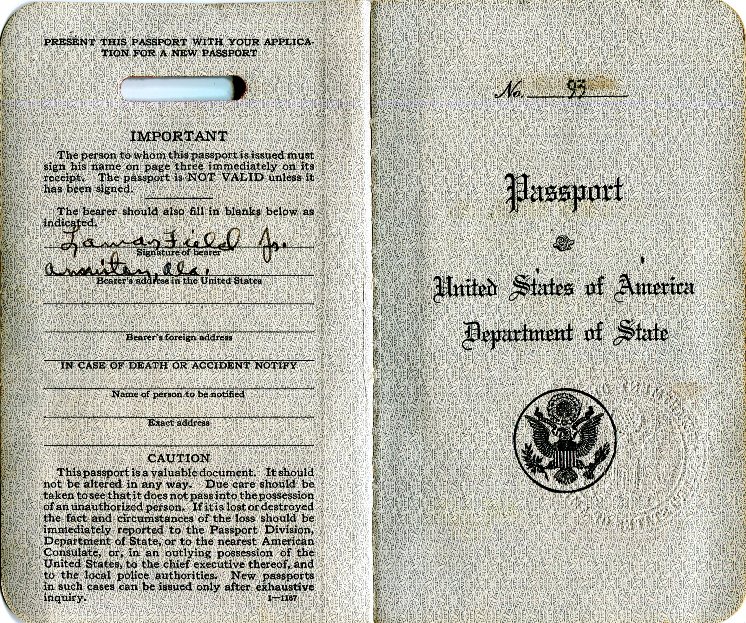 PRESENT THIS PASSPORT WITH YOUR APPLICA-
TION FOR A NEW PASSPORT
IMPORTANT
The person to whom this passport is issued must
sign his name on page three immediately on its
receipt. The passport is NOT VALID unless it
has been signed.
The bearer should also fill in blanks below as
indicated.
Lamar Field Jr.
Signature of bearer
Anniston, Ala.
Bearer's address in the United States
Bearer's foreign address
IN CASE OF DEATH OR ACCIDENT NOTIFY
Name of person to be notified
Exact address
CAUTION
This passport is a valuable document. It should
not be altered in any way. Due care should be
taken to see that it does not pass into the possession
of an unauthorized person. If it is lost or destroyed
the fact and circumstances of the loss should be
immediately reported to the Passport Division,
Department of State, or to the nearest American
Consulate, or, in an outlying possession of the
United States, to the chief executive thereof, and
to the local police authorities. New passports
in such cases can be issued only after exhaustive
inquiry.
1—1167
No. 93
Passport
United States of America
Department of State